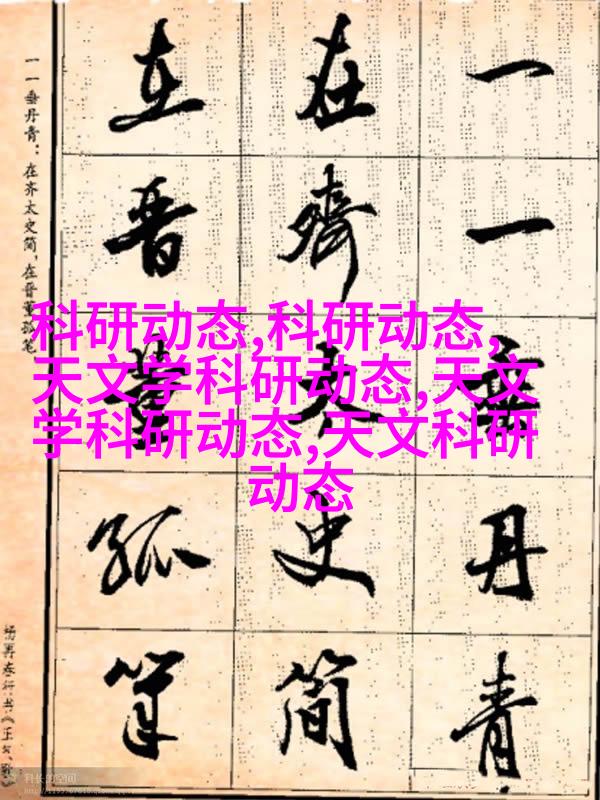 一一垂丹青
在齐太史简
在晋董孤笔
一一垂丹青：在齐太史简，在晋董孤笔
科研动态,科研动态,
天文学科研动态,天文
学科研动态,天文科研
动态
科长的空间